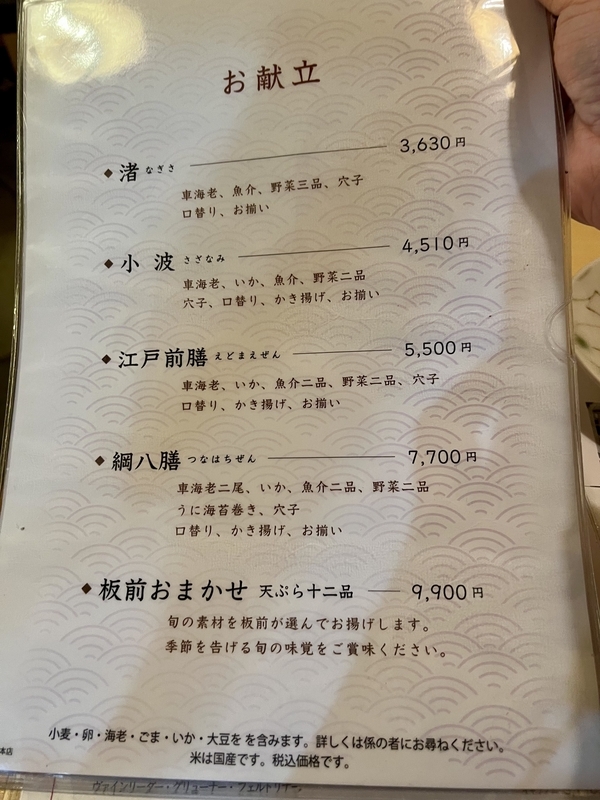 お献立
◆ 渚 なぎさ 3,630円
車海老、魚介、野菜三品、穴子
口替り、お揃い
◆ 小波 さざなみ 4,510円
車海老、いか、魚介、野菜二品
穴子、口替り、かき揚げ、お揃い
◆ 江戸前膳 えどまえぜん 5,500円
車海老、いか、魚介二品、野菜二品、穴子
口替り、かき揚げ、お揃い
◆ 綱八膳 つなはちぜん 7,700円
車海老二尾、いか、魚介二品、野菜二品
うに海苔巻き、穴子
口替り、かき揚げ、お揃い
◆ 板前おまかせ 天ぷら十二品 9,900円
旬の素材を板前が選んでお揚げします。
季節を告げる旬の味覚をご賞味ください。
小麦・卵・海老・ごま・いか・大豆を を含みます。詳しくは係の者にお尋ねください。
米は国産です。税込価格です。
本店
ヴァインリーダー・グリューナー・フェルトリナー